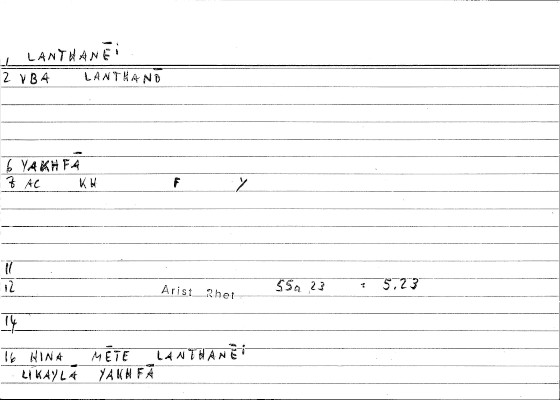 1 LANTHANĒi
2 VBA LANTHANŌ
6 YAKHFĀ
7 AC KH F Y
11
12 Arist Rhet 55a 23 = 5.23
14
16 HINA MĒTE LANTHANĒi
LIKAYLĀ YAKHFĀ